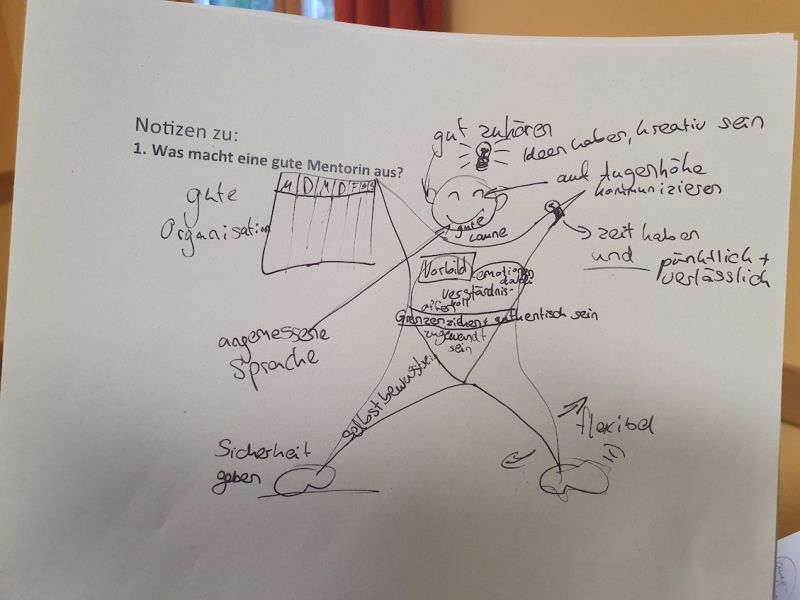 Notizen zu:
1. Was macht eine gute Mentorin aus?
M D M D F S S
gute
Organisation
gut zuhören
Ideen haben, kreativ sein
auf Augenhöhe
kommunizieren
gute
Laune
zeit haben
und pünktlich +
verlässlich
Vorbild
emotionen
dabei
verständnis-
Grenzen ziehen + authentisch sein
zugewandt
sein
angemessene
Sprache
selbstbewusstsein
Sicherheit
geben
flexibel